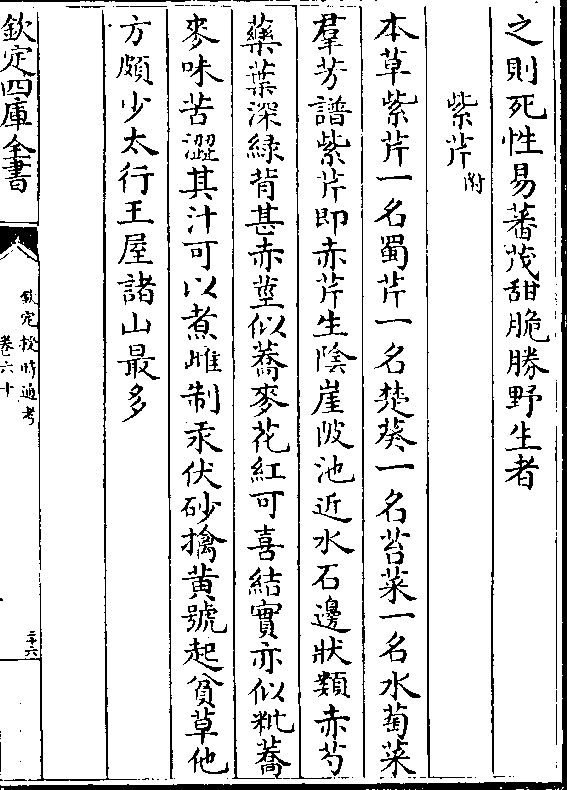 之則死性易蕃茂甜脆勝野生者
紫芹附
本草紫芹一名蜀芹一名楚葵一名苔菜一名水萄菜
羣芳譜紫芹即赤芹生陰崖陂池近水石邊狀類赤芍
藥葉深綠背甚赤莖似蕎麥花紅可喜結實亦似粃蕎
麥味苦澀其汁可以煮雌制汞伏砂擒黄號起貧草他
方頗少太行王屋諸山最多
欽定四庫全書
欽定授時通考
卷六十
二十六